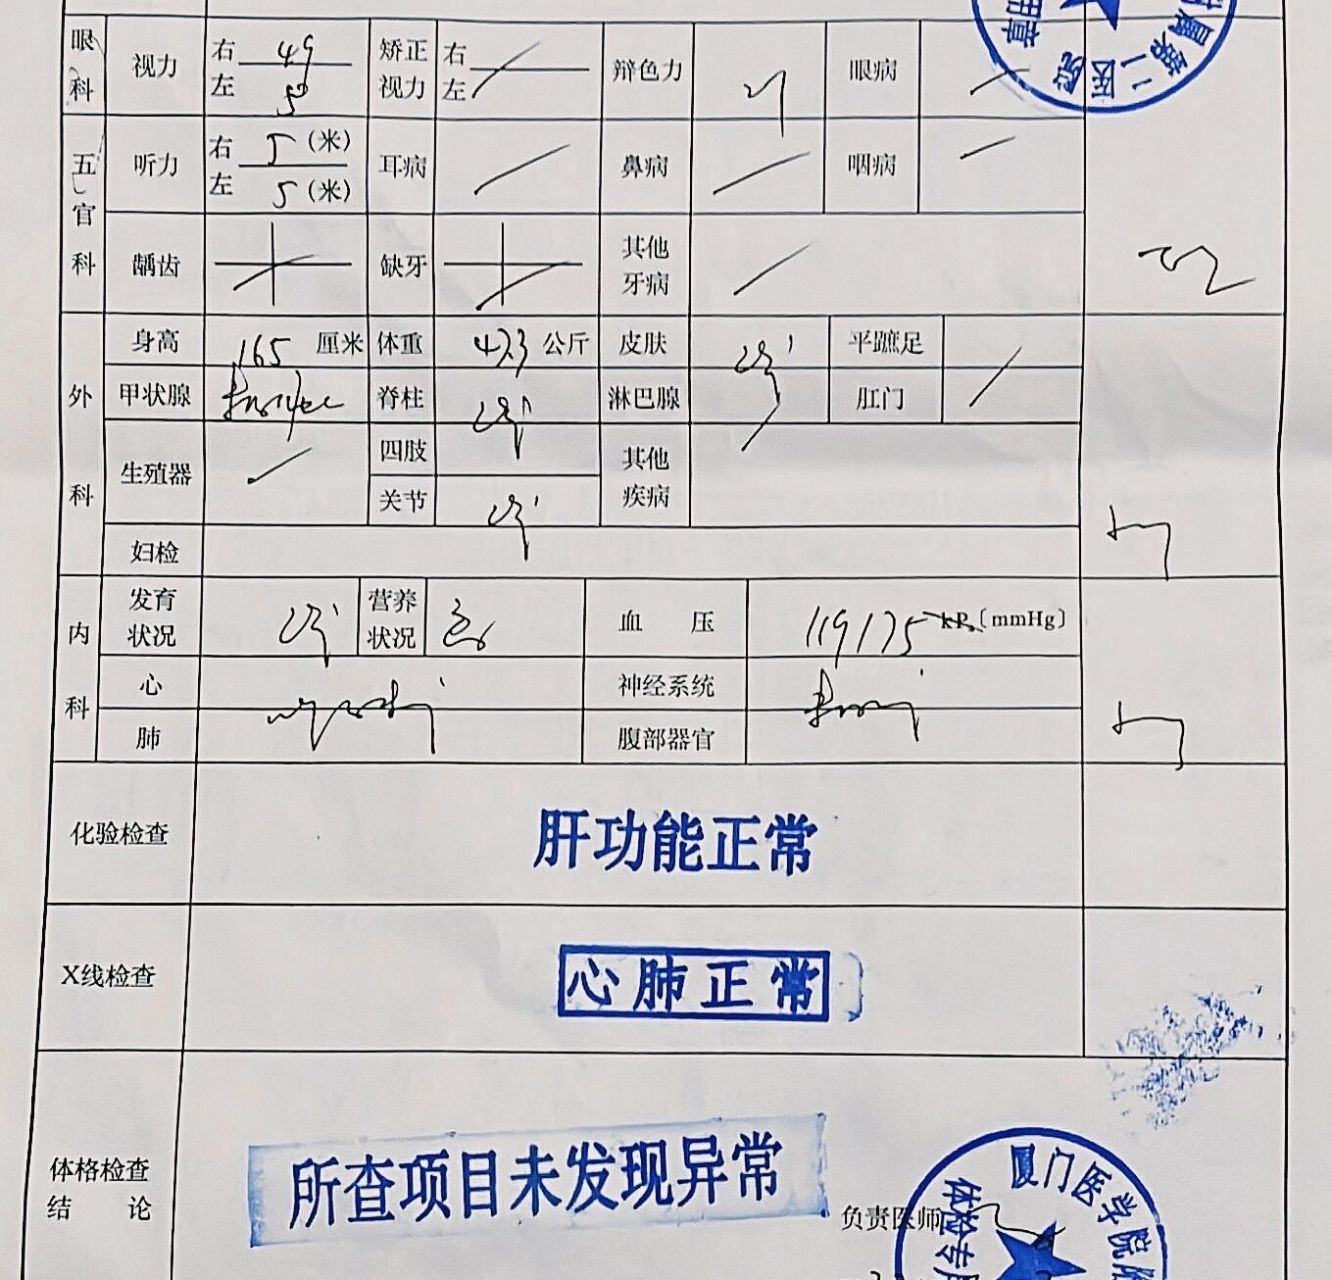 眼科 视力 右 49 左 50 矫正视力 右 左 辩色力 眼病
五官科 听力 右 5(米) 左 5(米) 耳病 鼻病 咽病
龋齿 缺牙 其他牙病
外科 身高 165 厘米 体重 47.3 公斤 皮肤 平蹠足
甲状腺 脊柱 淋巴腺 肛门
生殖器 四肢 关节 其他疾病
妇检
内科 发育状况 营养状况 血压 119/75 kPa〔mmHg〕
心 神经系统
肺 腹部器官
化验检查 肝功能正常
X线检查 心肺正常
体格检查结论 所查项目未发现异常
负责医师
厦门医学院
体检专用
属第二医院
用章